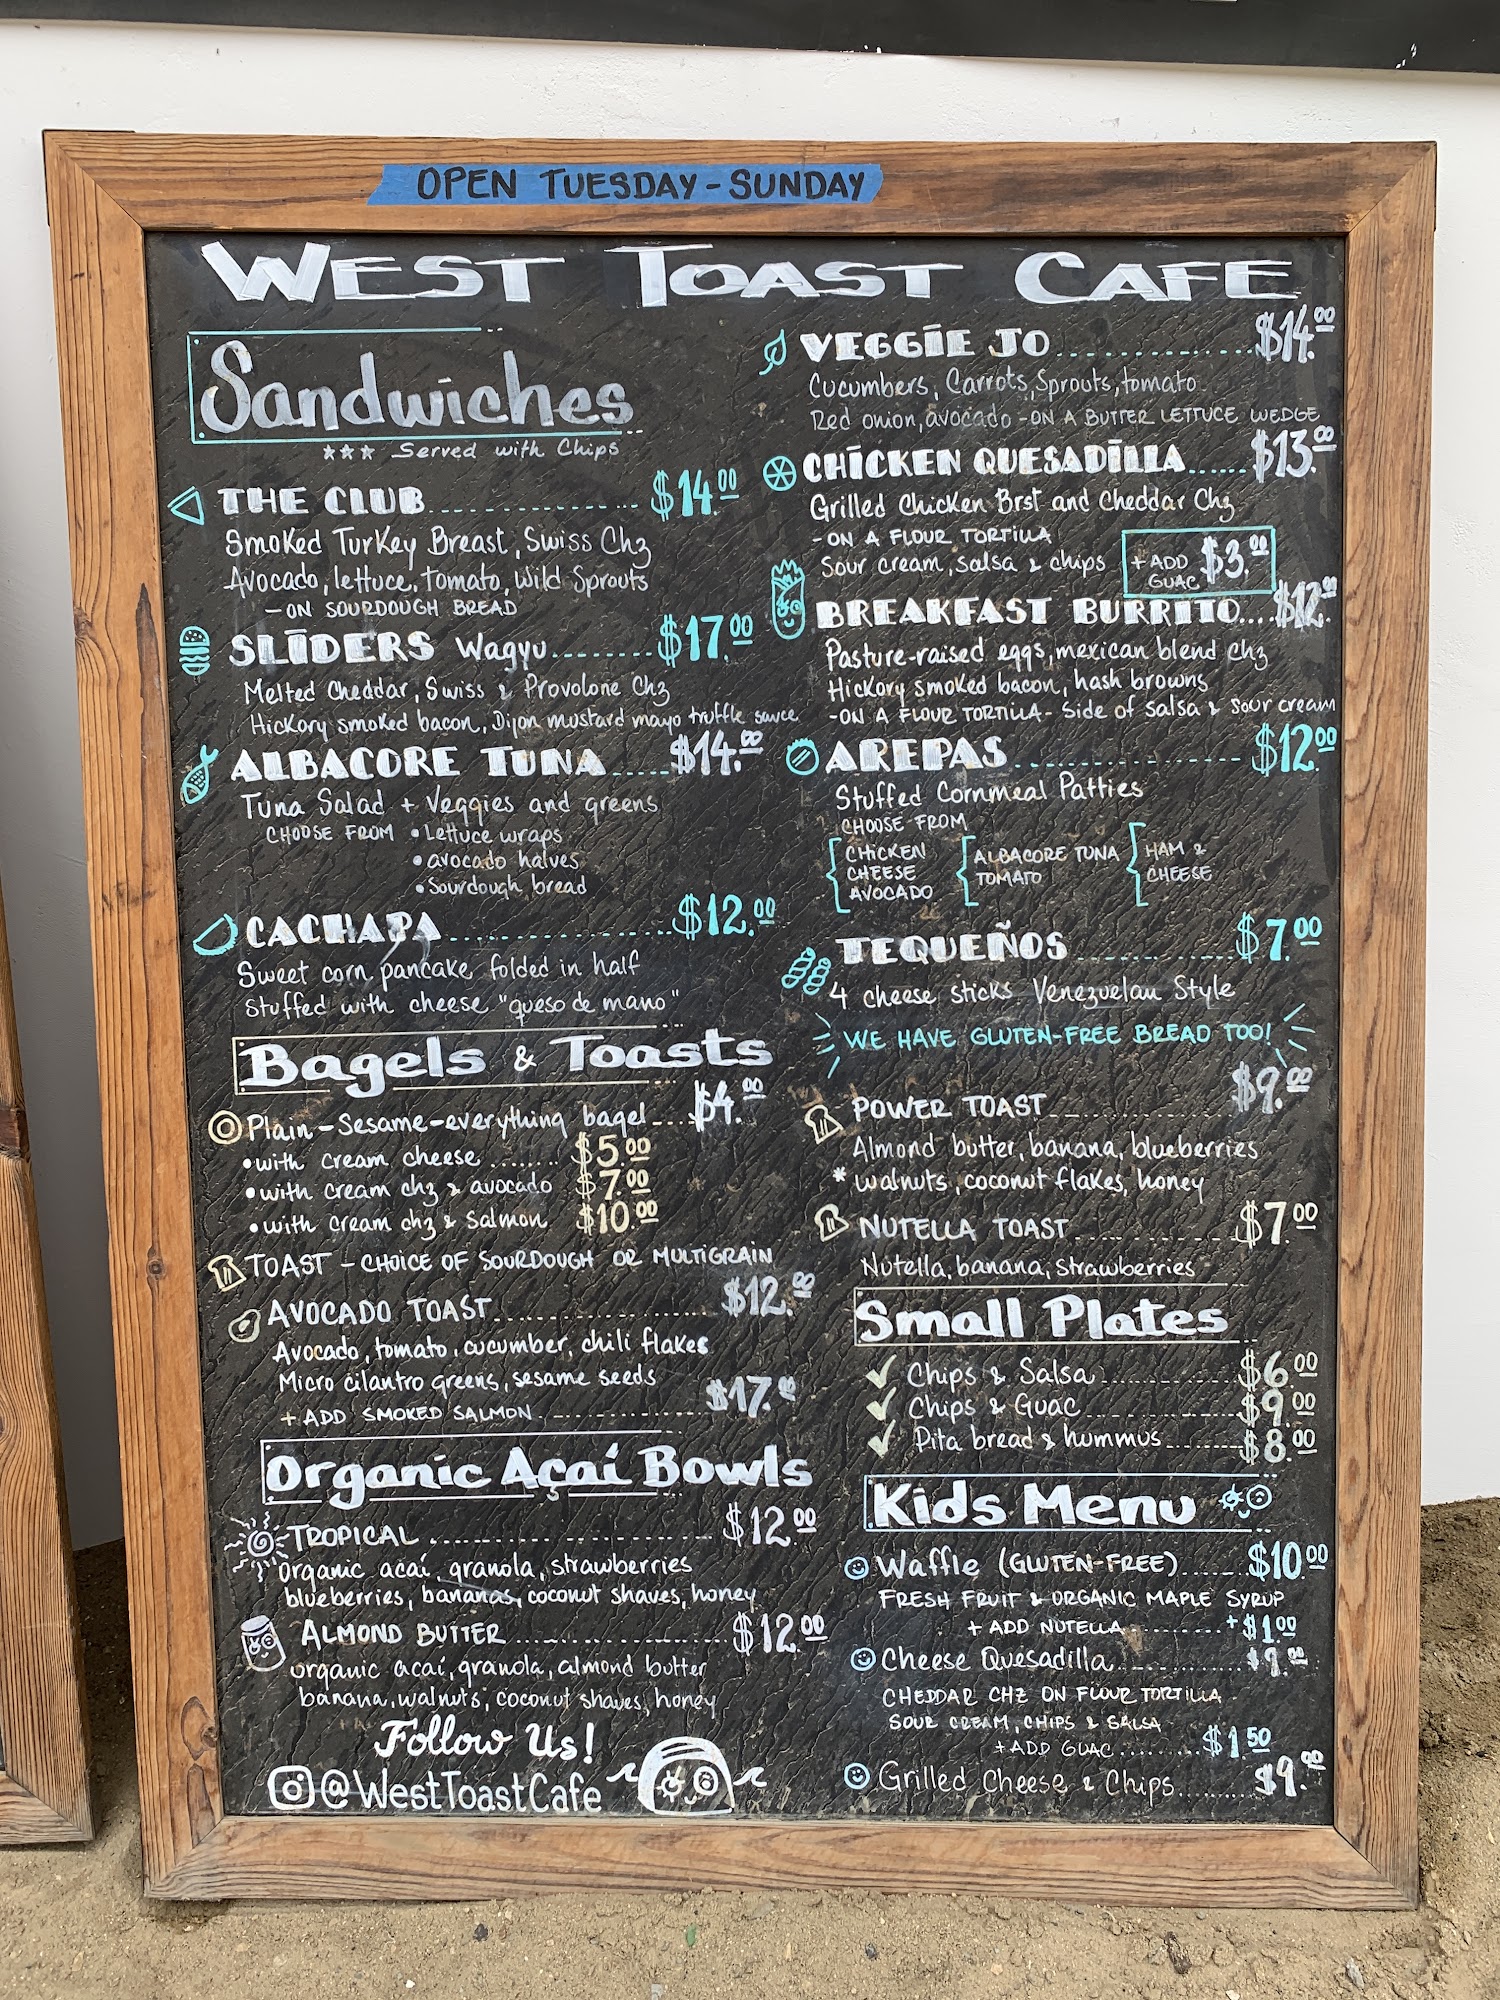 OPEN TUESDAY-SUNDAY
WEST TOAST CAFE
Sandwiches
*** Served with Chips
THE CLUB $14.00
Smoked Turkey Breast, Swiss Chz
Avocado, lettuce, tomato, wild Sprouts
- ON SOURDOUGH BREAD
SLIDERS Wagyu $17.00
Melted Cheddar, Swiss & Provolone Chz
Hickory smoked bacon, Dijon mustard mayo truffle sauce
ALBACORE TUNA $14.00
Tuna Salad + Veggies and greens
CHOOSE FROM • Lettuce wraps
• avocado halves
• Sourdough bread
CACHAPA $12.00
Sweet corn pancake folded in half
Stuffed with cheese "queso de mano"
VEGGIE JO $14.00
Cucumbers, Carrots, Sprouts, tomato
Red onion, avocado - ON A BUTTER LETTUCE WEDGE
CHICKEN QUESADILLA $13.00
Grilled Chicken Brst and Cheddar Chz
- ON A FLOUR TORTILLA
Sour cream, salsa & chips
+ ADD GUAC $3.00
BREAKFAST BURRITO $12.00
Pasture-raised eggs, mexican blend chz
Hickory smoked bacon, hash browns
- ON A FLOUR TORTILLA - Side of salsa & sour cream
AREPAS $12.00
Stuffed Cornmeal Patties
CHOOSE FROM
CHICKEN
CHEESE
AVOCADO
ALBACORE TUNA
TOMATO
HAM &
CHEESE
TEQUEÑOS $7.00
4 cheese sticks Venezuelan Style
WE HAVE GLUTEN-FREE BREAD TOO!
Bagels & Toasts
Plain - Sesame - everything bagel $4.00
• with cream cheese $5.00
• with cream chz & avocado $7.00
• with cream chz & salmon $10.00
TOAST - CHOICE OF SOURDOUGH OR MULTIGRAIN
AVOCADO TOAST $12.00
Avocado, tomato, cucumber, chili flakes
Micro cilantro greens, sesame seeds
+ ADD SMOKED SALMON $17.00
POWER TOAST $9.00
Almond butter, banana, blueberries
* walnuts, coconut flakes, honey
NUTELLA TOAST $7.00
Nutella, banana, strawberries
Organic Açaí Bowls
TROPICAL $12.00
organic açaí, granola, strawberries
blueberries, bananas, coconut shaves, honey
ALMOND BUTTER $12.00
organic açaí, granola, almond butter
banana, walnuts, coconut shaves, honey
Small Plates
Chips & Salsa $6.00
Chips & Guac $9.00
Pita bread & hummus $8.00
Kids Menu
Waffle (GLUTEN-FREE) $10.00
FRESH FRUIT & ORGANIC MAPLE SYRUP
+ ADD NUTELLA +$1.00
Cheese Quesadilla $9.00
CHEDDAR CHZ ON FLOUR TORTILLA
SOUR CREAM, CHIPS & SALSA
+ ADD GUAC $1.50
Grilled Cheese & Chips $9.00
Follow Us!
@WestToastCafe